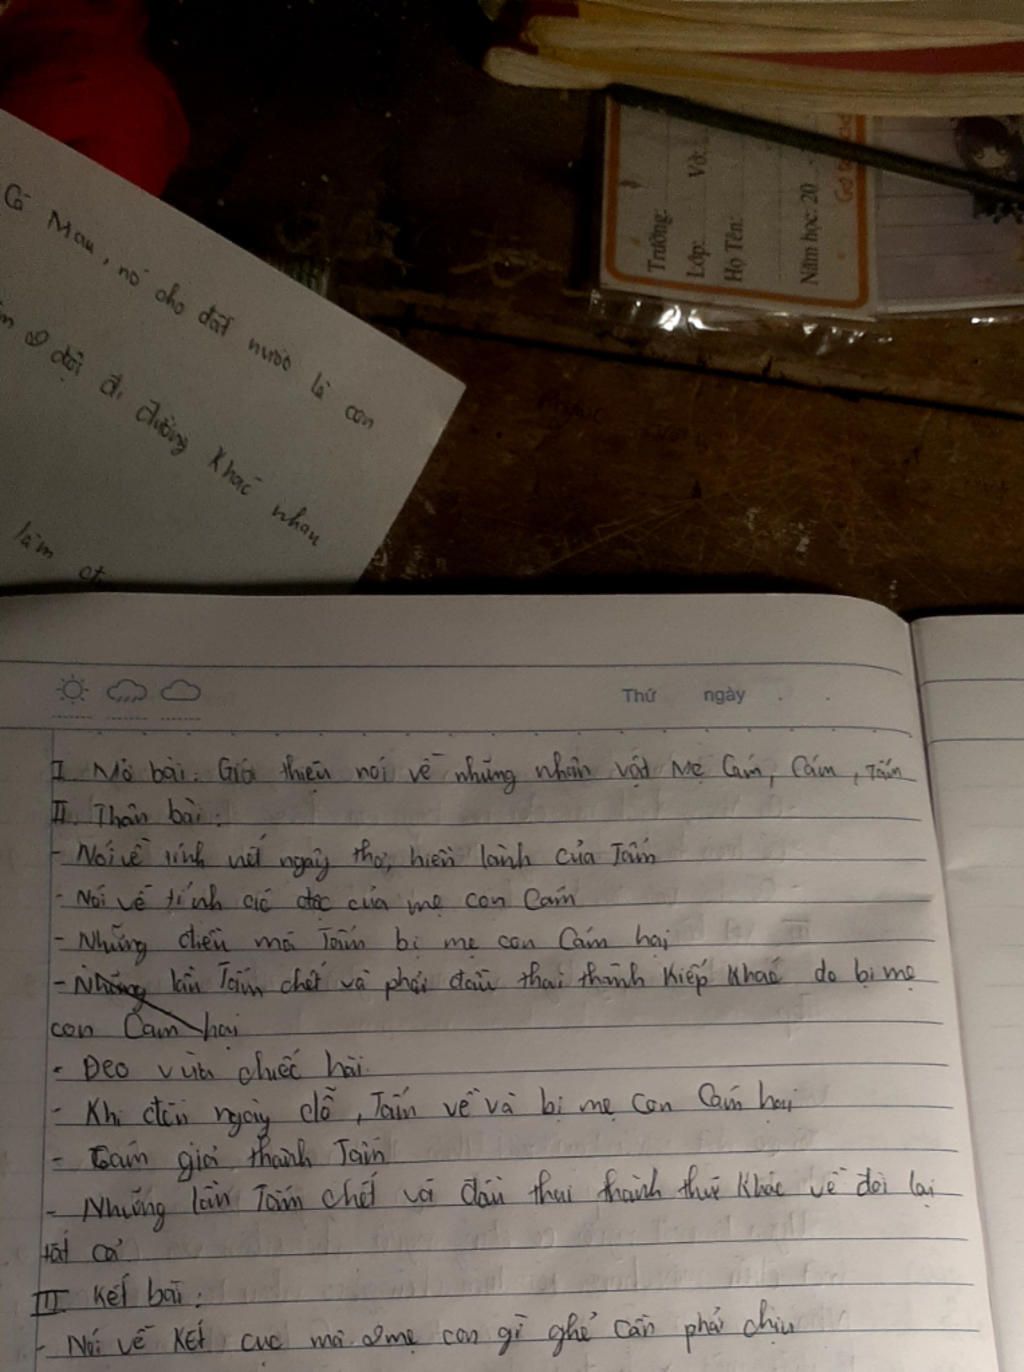 Cà Mau, nó cho đất nước là con
đôi đi đường khác nhau
làm
Trường:
Lớp: Vở:
Họ Tên:
Năm học: 20
Thứ ngày
I Mở bài: Giới thiệu nói về những nhân vật Mẹ Cám, Cám, Tấm
II. Thân bài:
- Nói về tính nết ngây thơ, hiền lành của Tấm
- Nói về tính ác độc của mẹ con Cám
- Những điều mà Tấm bị mẹ con Cám hại
- Những lần Tấm chết và phải đầu thai thành kiếp khác do bị mẹ
con Cám hại
- Đeo vừa chiếc hài
- Khi đến ngày dỗ, Tấm về và bị mẹ con Cám hại
- Cám giả thành Tấm
- Những lần Tấm chết và đầu thai thành thứ khác về đòi lại
tất cả
III Kết bài:
- Nói về kết cục mà 2 mẹ con gì ghẻ cần phải chịu